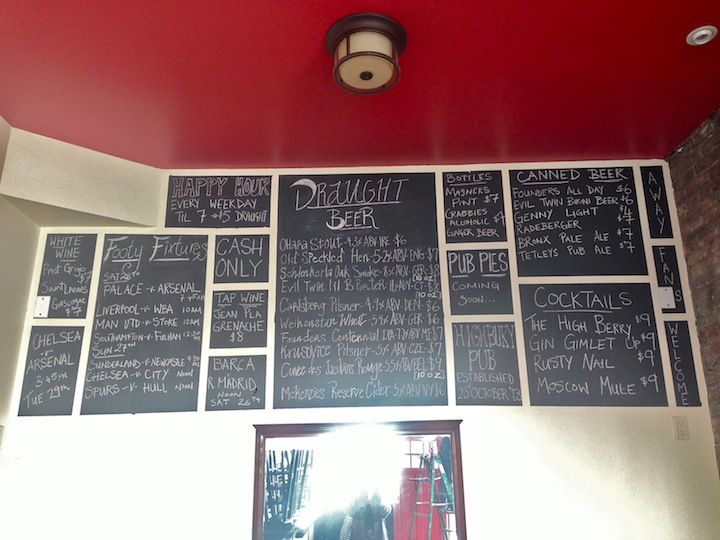 HAPPY HOUR
EVERY WEEKDAY
TIL 7 $5 DRAUGHT
WHITE WINE
Pinot Grigio
$7
Footy Fixtures
SAT 26TH
PALACE -V- ARSENAL
7 45AM
LIVERPOOL -V- WBA 10AM
MAN UTD -V- STOKE 10AM
SOUTHAMPTON -V- FULHAM
SUN 27TH
SUNDERLAND -V- NEWCASTLE
CHELSEA -V- CITY NOON
SPURS -V- HULL NOON
CHELSEA
-V-
ARSENAL
3 45PM
TUE 29TH
CASH
ONLY
TAP WINE
JEAN PLA
GRENACHE
$8
BARCA
R MADRID
NOON
SAT 26TH
DRAUGHT
BEER
OHARA STOUT - 4.3% ABV - IRE $6
Old Speckled Hen 5.2% ABV-ENG $6
Schlenkerla Oak Smoke - 8% ABV-GER $8
(10 OZ)
Evil Twin Lil B Porter
(10 OZ)
Carlsberg Pilsner
Weihenstephan
Founders Centennial IPA
Krusovice Pilsner - 5% ABV-CZE $7
Cuvee des Jacobins Rouge
(10 OZ)
McKenzies Reserve Cider - 5% ABV-NY $6
BOTTLES
MAGNERS
PINT $7
CRABBIES
ALCOHOLIC
GINGER BEER
PUB PIES
COMING
SOON...
HIGHBURY
PUB
ESTABLISHED
25 OCTOBER 13
CANNED BEER
FOUNDERS ALL DAY $6
EVIL TWIN BIKINI BEER $6
GENNY LIGHT $4
RADEBERGER
BRONX PALE ALE $7
TETLEYS PUB ALE $7
COCKTAILS
THE HIGH BERRY $9
GIN GIMLET UP $9
RUSTY NAIL $9
MOSCOW MULE $9
AWAY
FANS
WELCOME